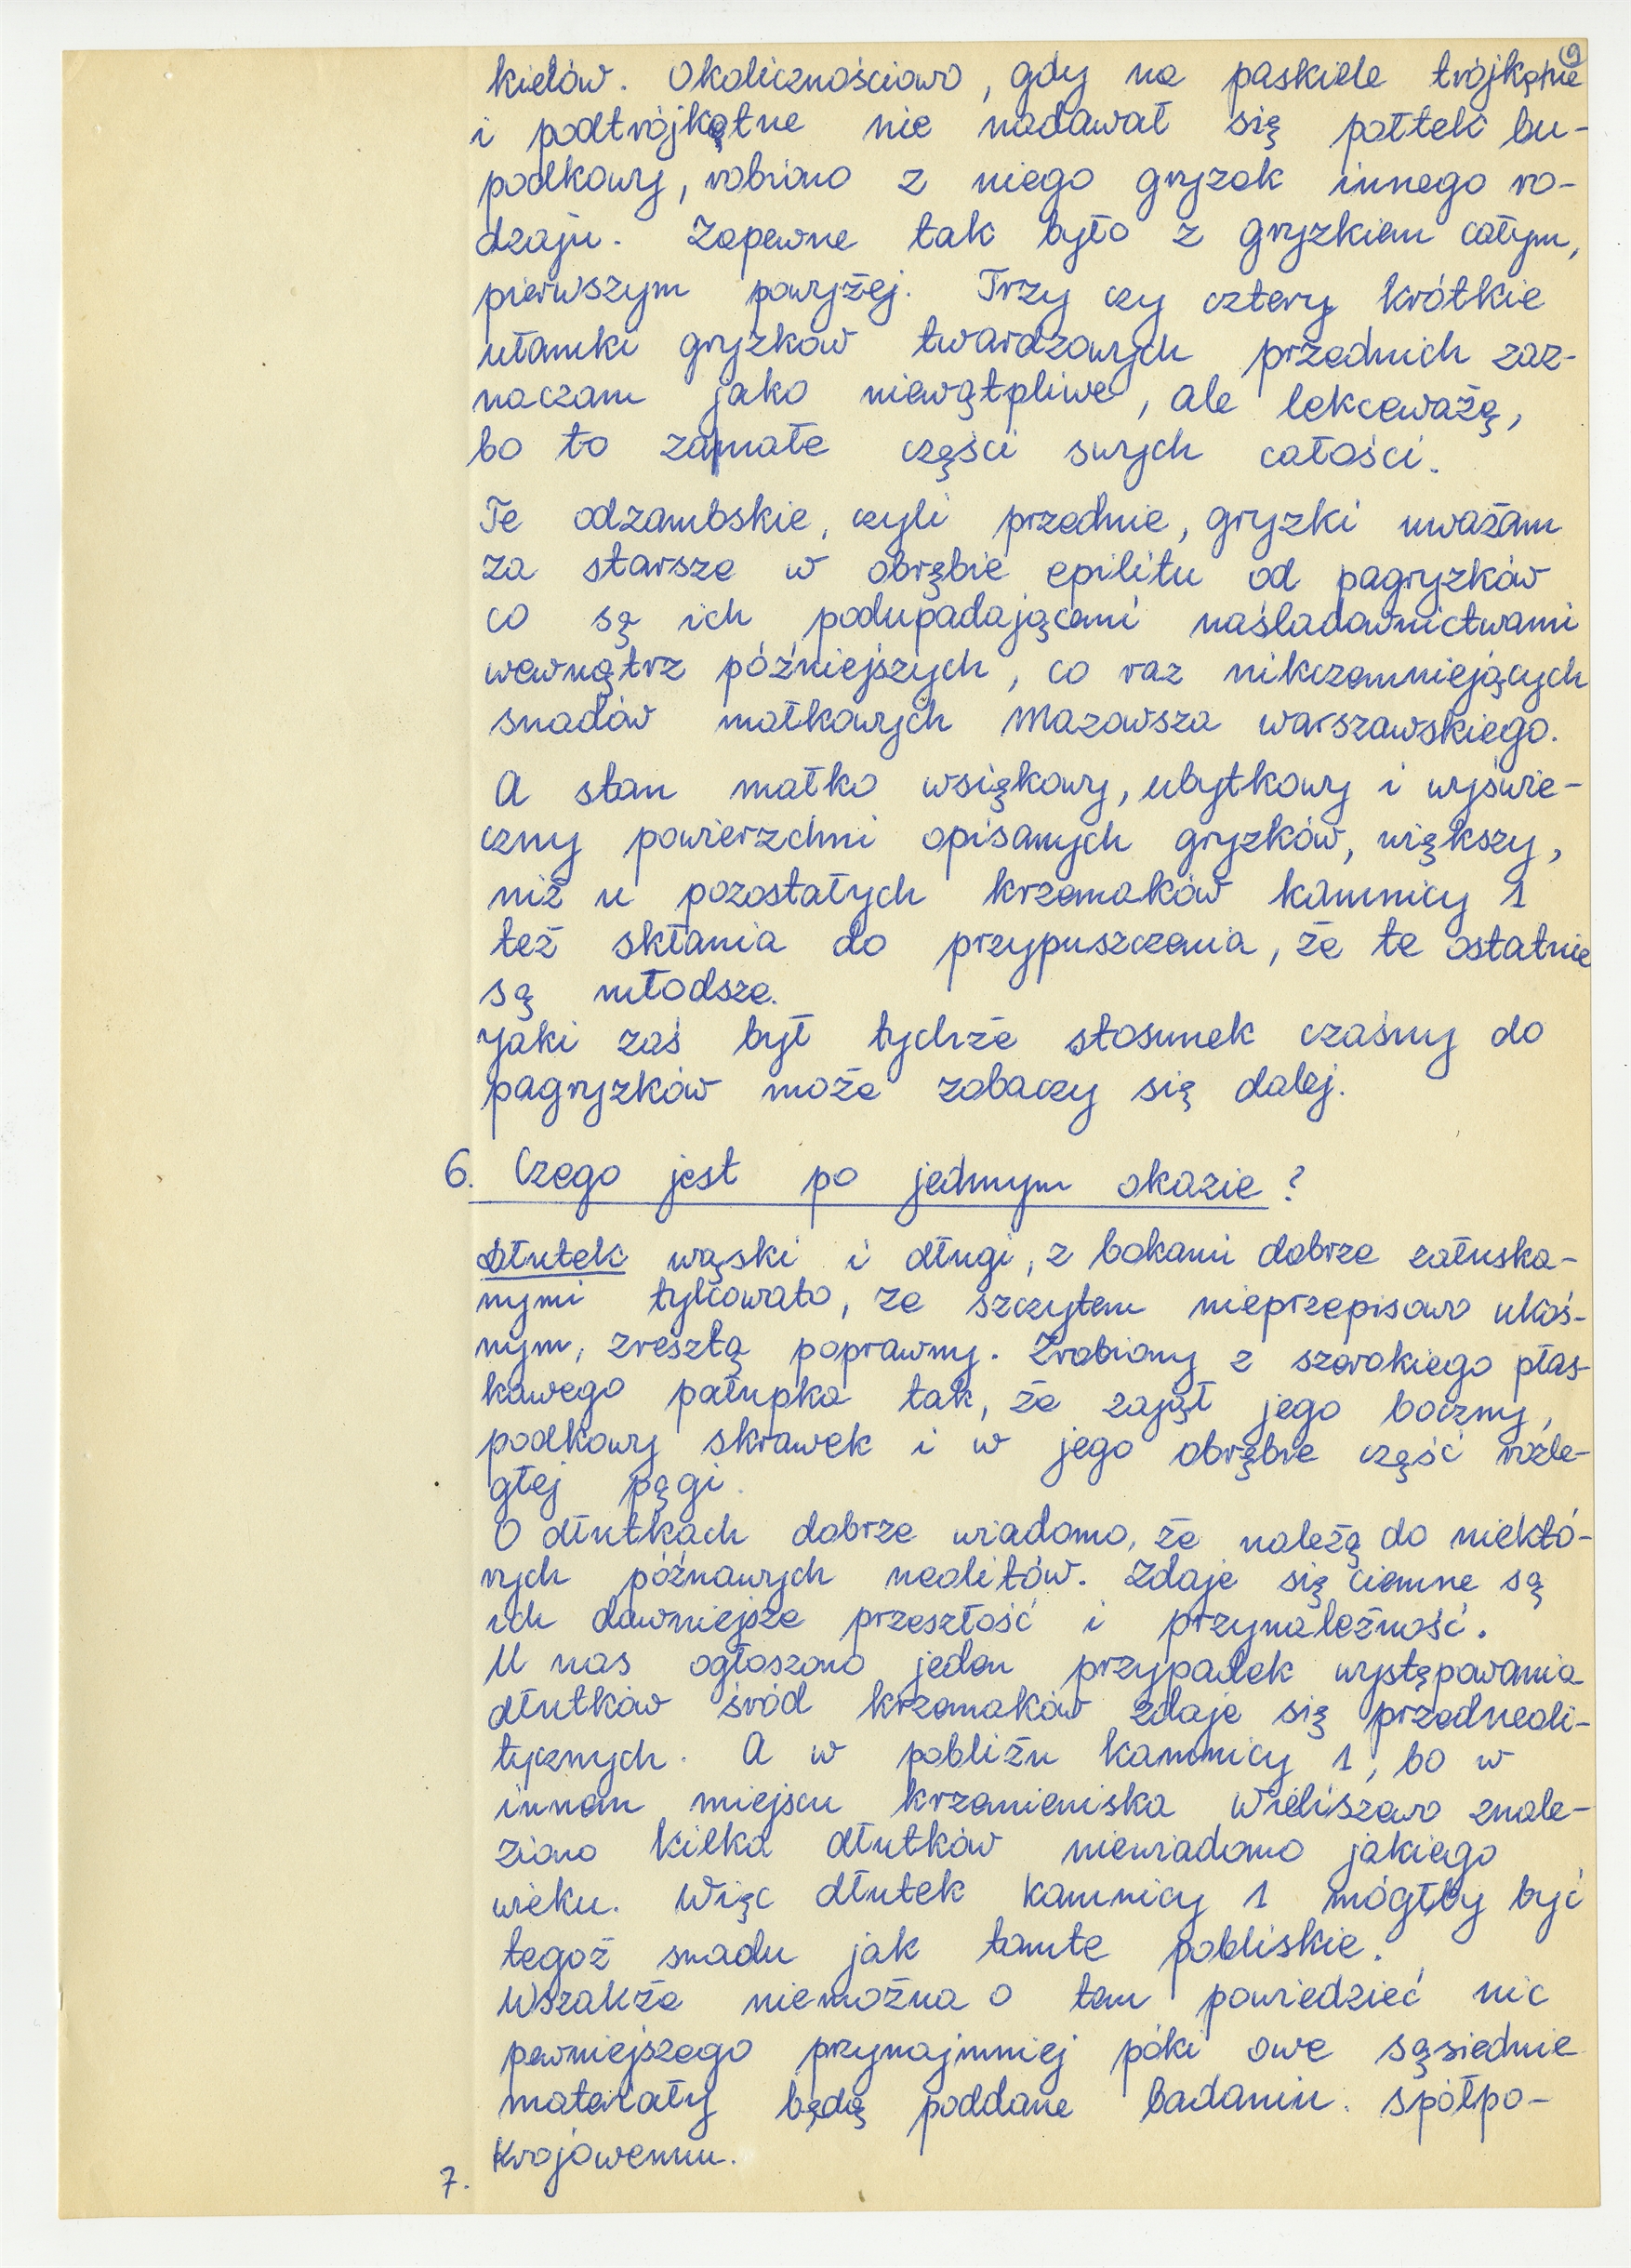 9
kielów. Okolicznościowo, gdy na paskiele trójkątne
i podtrójkątne nie nadawał się połtek bu-
podkowy, robiono z niego gryzek innego ro-
dzaju. Zapewne tak było z gryzkiem całym,
pierwszym powyżej. Trzy czy cztery krótkie
ułamki gryzków twardzowych przednich zaz-
naczam jako niewątpliwe, ale lekceważę,
bo to zamałe części swych całości.
Te odzambskie, czyli przednie, gryzki uważam
za starsze w obrębie epilitu od pagryzków
co są ich podupadającemi naśladownictwami
wewnątrz późniejszych, co raz nikczemniejących
snadów małkowych Mazowsza warszawskiego.
A stan małko wsiękowy, ubytkowy i wyświe-
czny powierzchni opisanych gryzków, większy,
niż u pozostałych krzemaków kamnicy 1
też skłania do przypuszczenia, że te ostatnie
są młodsze.
Jaki zaś był tychże stosunek czaśny do
pagryzków może zobaczy się dalej.
6. Czego jest po jednym okazie?
Dłutek wąski i długi, z bokami dobrze załuska-
nymi tylcowato, ze szczytem nieprzepisowo ukoś-
nym, zresztą poprawny. Zrobiony z szerokiego płas-
kawego pałupka tak, że zajął jego boczny,
podkowy skrawek i w jego obrębie część rozle-
głej pągi.
O dłutkach dobrze wiadomo, że należą do niektó-
rych późnawych neolitów. Zdaje się ciemne są
ich dawniejsze przeszłość i przynależność.
U nas ogłoszono jeden przypadek występowania
dłutków śród krzemaków zdaje się przedneoli-
tycznych. A w pobliżu kamnicy 1, bo w
innem miejscu krzemieniska Wieliszewo znale-
ziono kilka dłutków niewiadomo jakiego
wieku. Więc dłutek kamnicy 1 mógłby być
tegoż snadu jak tamte pobliskie.
Wszakże niemożna o tem powiedzieć nic
pewniejszego przynajmniej póki owe sąsiednie
materiały będą poddane badaniu spółpo-
krojowemu.
7.